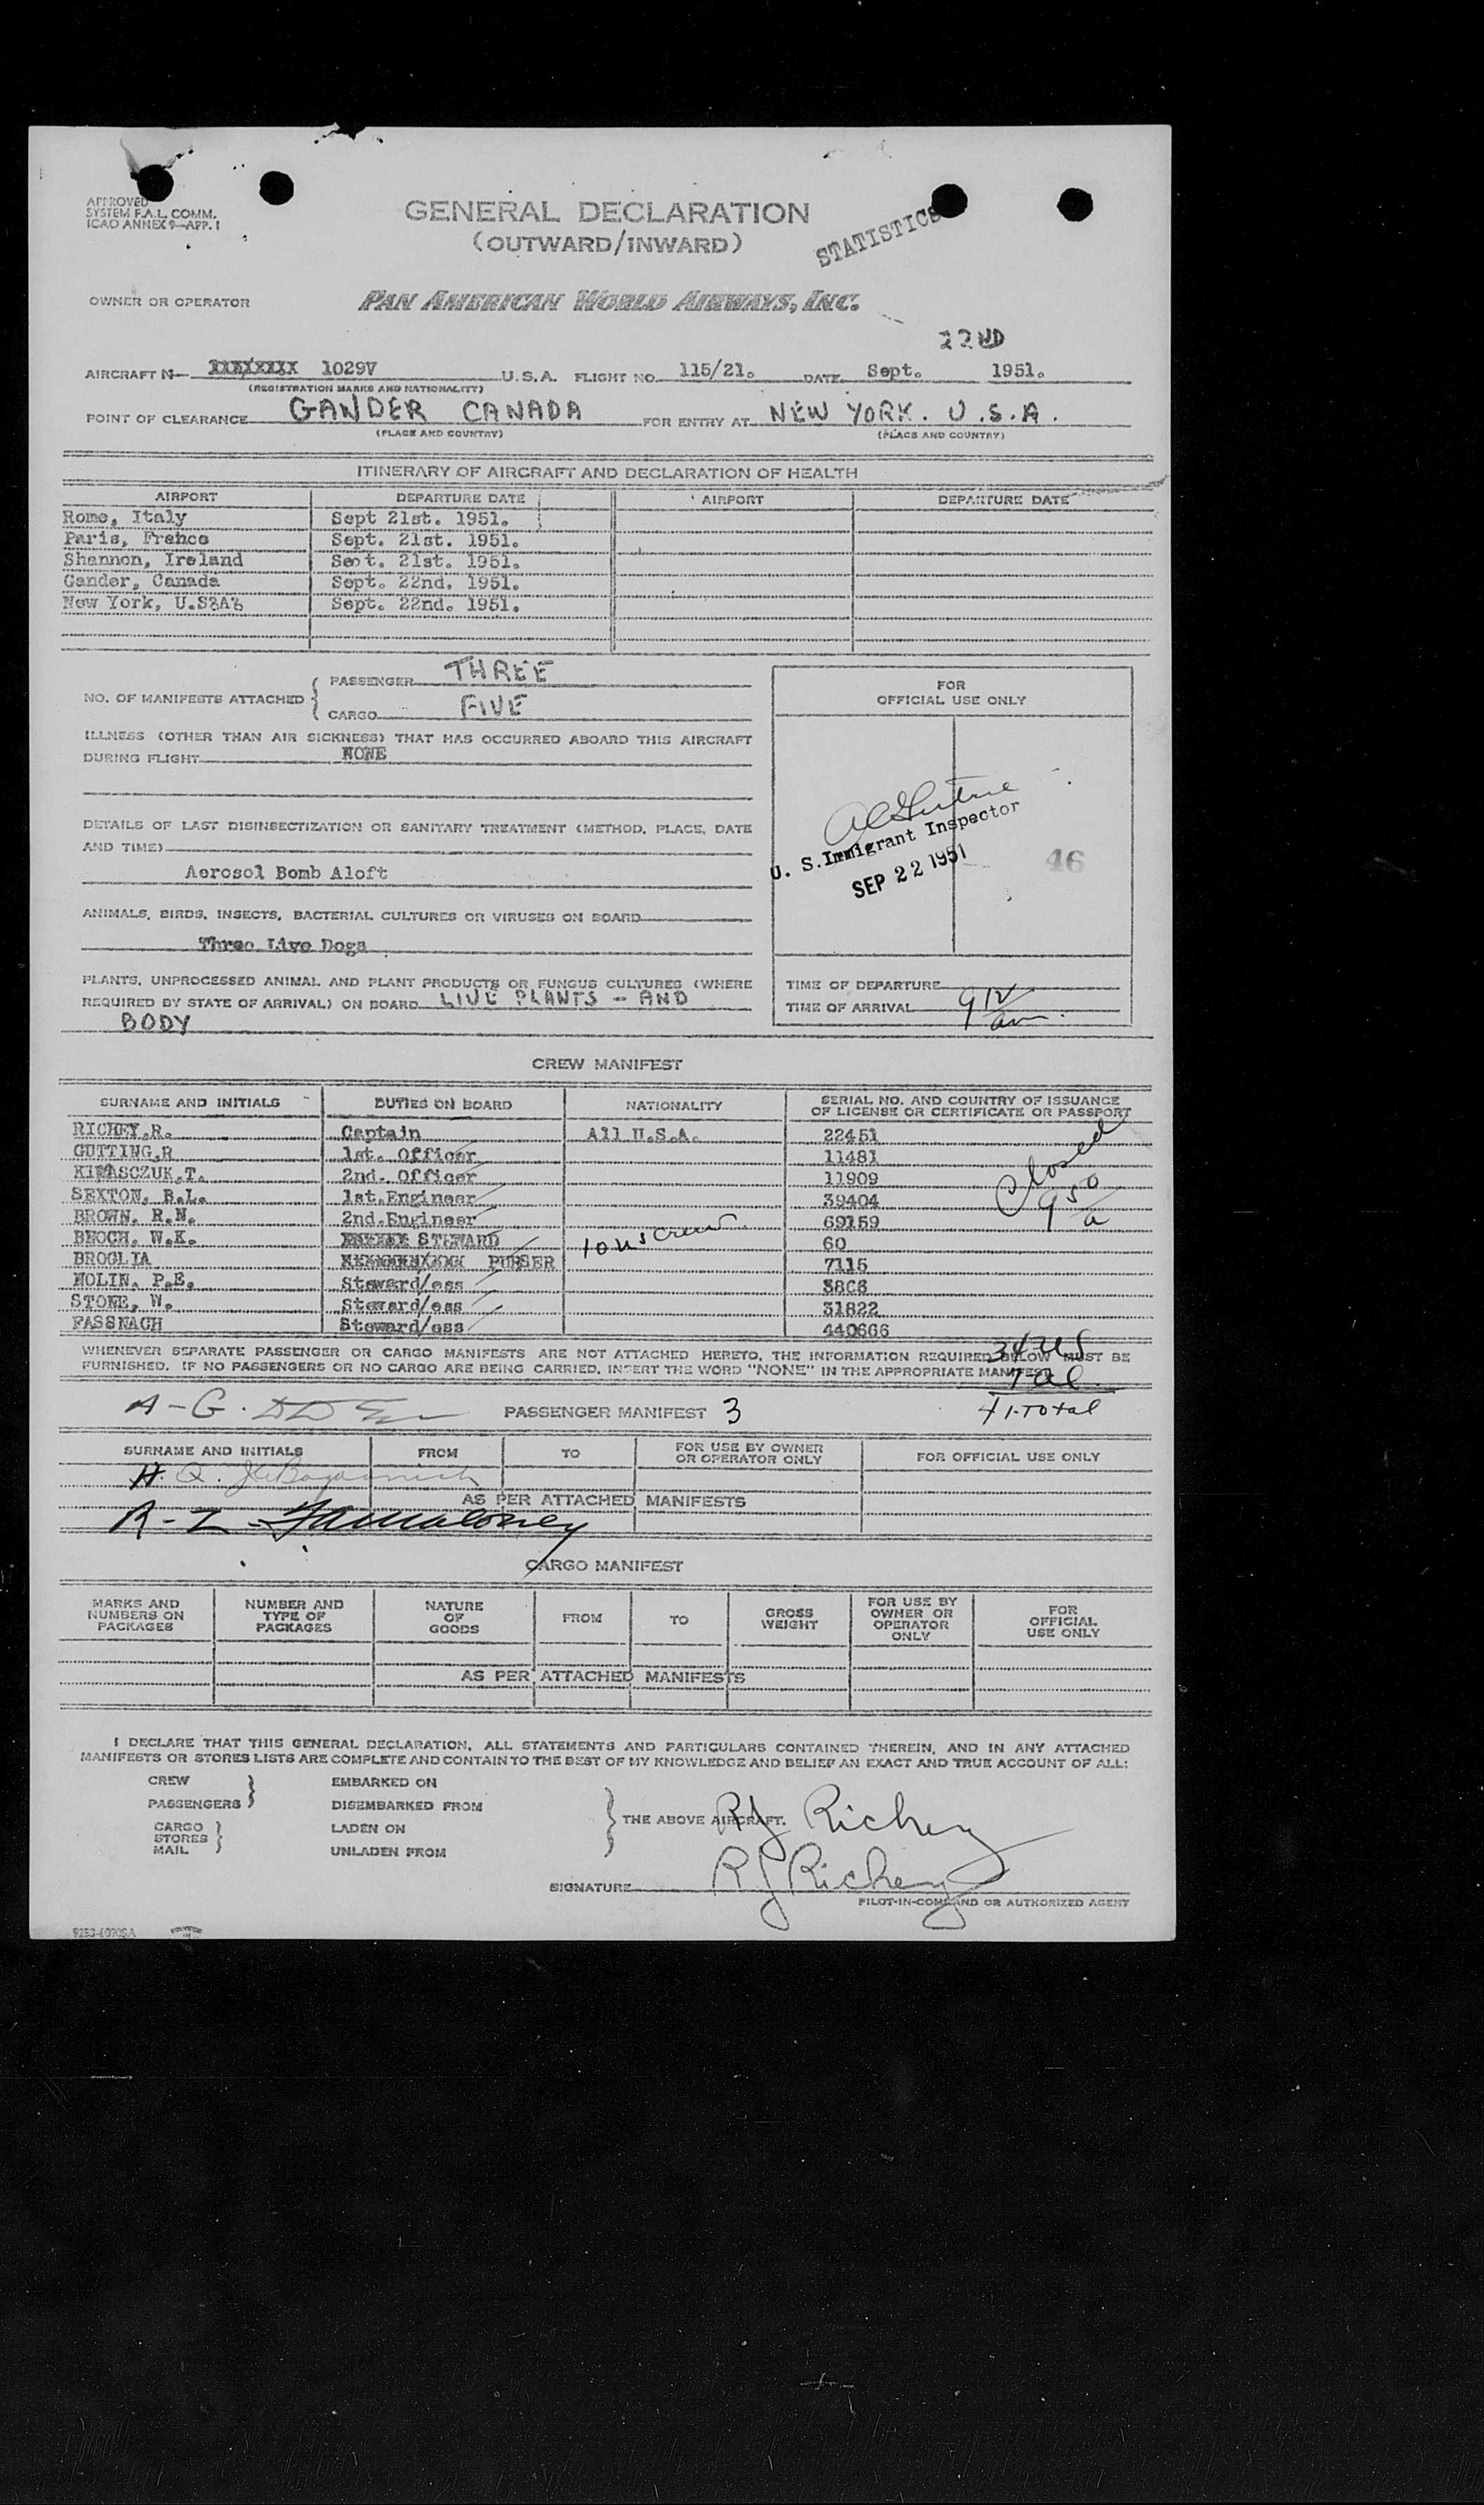 APPROVED
SYSTEM F.A.L. COMM.
ICAO ANNEX 9—APP. 1
GENERAL DECLARATION
(OUTWARD/INWARD)
STATISTICS
OWNER OR OPERATOR PAN AMERICAN WORLD AIRWAYS, INC.
22ND
AIRCRAFT N— 1029V U.S.A. FLIGHT NO. 115/21. DATE Sept. 1951.
(REGISTRATION MARKS AND NATIONALITY)
POINT OF CLEARANCE GANDER CANADA FOR ENTRY AT NEW YORK. U.S.A.
(PLACE AND COUNTRY) (PLACE AND COUNTRY)
ITINERARY OF AIRCRAFT AND DECLARATION OF HEALTH
AIRPORT DEPARTURE DATE AIRPORT DEPARTURE DATE
Rome, Italy Sept 21st. 1951.
Paris, France Sept. 21st. 1951.
Shannon, Ireland Sept. 21st. 1951.
Gander, Canada Sept. 22nd. 1951.
New York, U.S&A& Sept. 22nd. 1951.
NO. OF MANIFESTS ATTACHED
PASSENGER THREE
CARGO FIVE
ILLNESS (OTHER THAN AIR SICKNESS) THAT HAS OCCURRED ABOARD THIS AIRCRAFT
DURING FLIGHT NONE
DETAILS OF LAST DISINSECTIZATION OR SANITARY TREATMENT (METHOD, PLACE, DATE
AND TIME)
Aerosol Bomb Aloft
ANIMALS, BIRDS, INSECTS, BACTERIAL CULTURES OR VIRUSES ON BOARD
Three Live Dogs
PLANTS, UNPROCESSED ANIMAL AND PLANT PRODUCTS OR FUNGUS CULTURES (WHERE
REQUIRED BY STATE OF ARRIVAL) ON BOARD LIVE PLANTS - AND
BODY
FOR
OFFICIAL USE ONLY
U. S. Immigrant Inspector
SEP 22 1951
46
TIME OF DEPARTURE
TIME OF ARRIVAL 9 12 am.
CREW MANIFEST
SURNAME AND INITIALS DUTIES ON BOARD NATIONALITY SERIAL NO. AND COUNTRY OF ISSUANCE
OF LICENSE OR CERTIFICATE OR PASSPORT
RICHEY.R. Captain All U.S.A. 22451
GUTTING,R 1st. Officer 11481
2nd. Officer 11909
SEXTON, R.L. 1st.Engineer 39404
BROWN, R.N. 2nd.Engineer 69159
W.K. STEWARD 60
BROGLIA PURSER 7115
P.E. Steward/ess
STONE, W. Steward/ess 31822
FASSNACH Steward/ess 440666
10 us crew
Closed
9 50 a
WHENEVER SEPARATE PASSENGER OR CARGO MANIFESTS ARE NOT ATTACHED HERETO, THE INFORMATION REQUIRED BELOW MUST BE
FURNISHED. IF NO PASSENGERS OR NO CARGO ARE BEING CARRIED, INSERT THE WORD "NONE" IN THE APPROPRIATE MANIFEST.
34 US
7 al.
41-Total
A-G.
PASSENGER MANIFEST 3
SURNAME AND INITIALS FROM TO FOR USE BY OWNER
OR OPERATOR ONLY FOR OFFICIAL USE ONLY
H. Q.
AS PER ATTACHED MANIFESTS
R-Z Maloney
CARGO MANIFEST
MARKS AND
NUMBERS ON
PACKAGES
NUMBER AND
TYPE OF
PACKAGES
NATURE
OF
GOODS
FROM
TO
GROSS
WEIGHT
FOR USE BY
OWNER OR
OPERATOR
ONLY
FOR
OFFICIAL
USE ONLY
AS PER ATTACHED MANIFESTS
I DECLARE THAT THIS GENERAL DECLARATION, ALL STATEMENTS AND PARTICULARS CONTAINED THEREIN, AND IN ANY ATTACHED
MANIFESTS OR STORES LISTS ARE COMPLETE AND CONTAIN TO THE BEST OF MY KNOWLEDGE AND BELIEF AN EXACT AND TRUE ACCOUNT OF ALL:
CREW EMBARKED ON
PASSENGERS DISEMBARKED FROM
CARGO
STORES
MAIL
LADEN ON
UNLADEN FROM
THE ABOVE AIRCRAFT.
RJ Richey
SIGNATURE RJ Richey
PILOT-IN-COMMAND OR AUTHORIZED AGENT